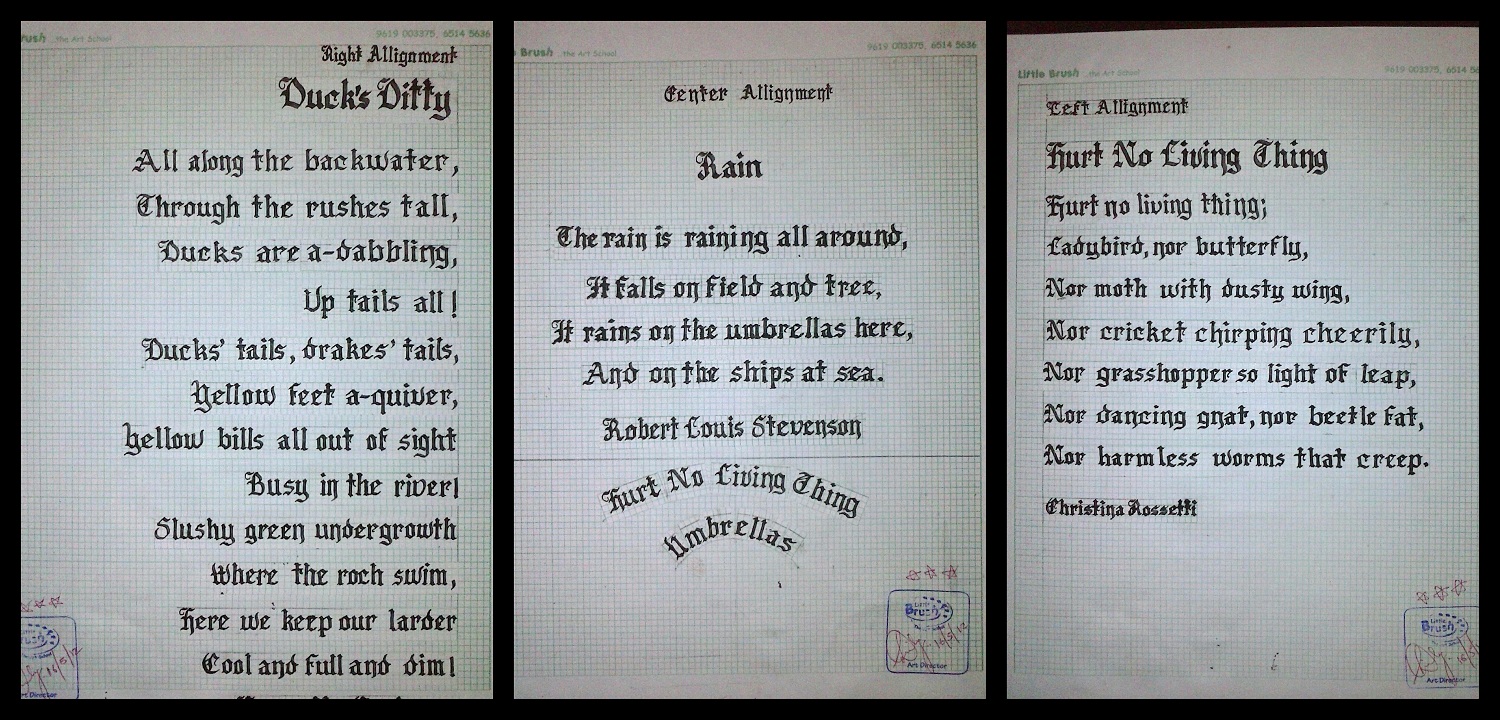 rush ...the Art School 9619 003375, 6514 5636
Right Allignment
Duck's Ditty
All along the backwater,
Through the rushes tall,
Ducks are a-dabbling,
Up tails all!
Ducks' tails, drakes' tails,
Yellow feet a-quiver,
Yellow bills all out of sight
Busy in the river!
Slushy green undergrowth
Where the roch swim,
Here we keep our larder
Cool and full and dim!
Brush
16/5/12
Art Director
Brush ...the Art School 9619 003375, 6514 5636
Center Allignment
Rain
The rain is raining all around,
It falls on field and tree,
It rains on the umbrellas here,
And on the ships at sea.
Robert Louis Stevenson
Hurt No Living Thing
Umbrellas
Little
Brush
16/5/12
Art Director
Little Brush ...the Art School 9619 003375, 6514 56
Left Allignment
Hurt No Living Thing
Hurt no living thing;
Ladybird, nor butterfly,
Nor moth with dusty wing,
Nor cricket chirping cheerily,
Nor grasshopper so light of leap,
Nor dancing gnat, nor beetle fat,
Nor harmless worms that creep.
Christina Rossetti
Little
Brush
Art Director